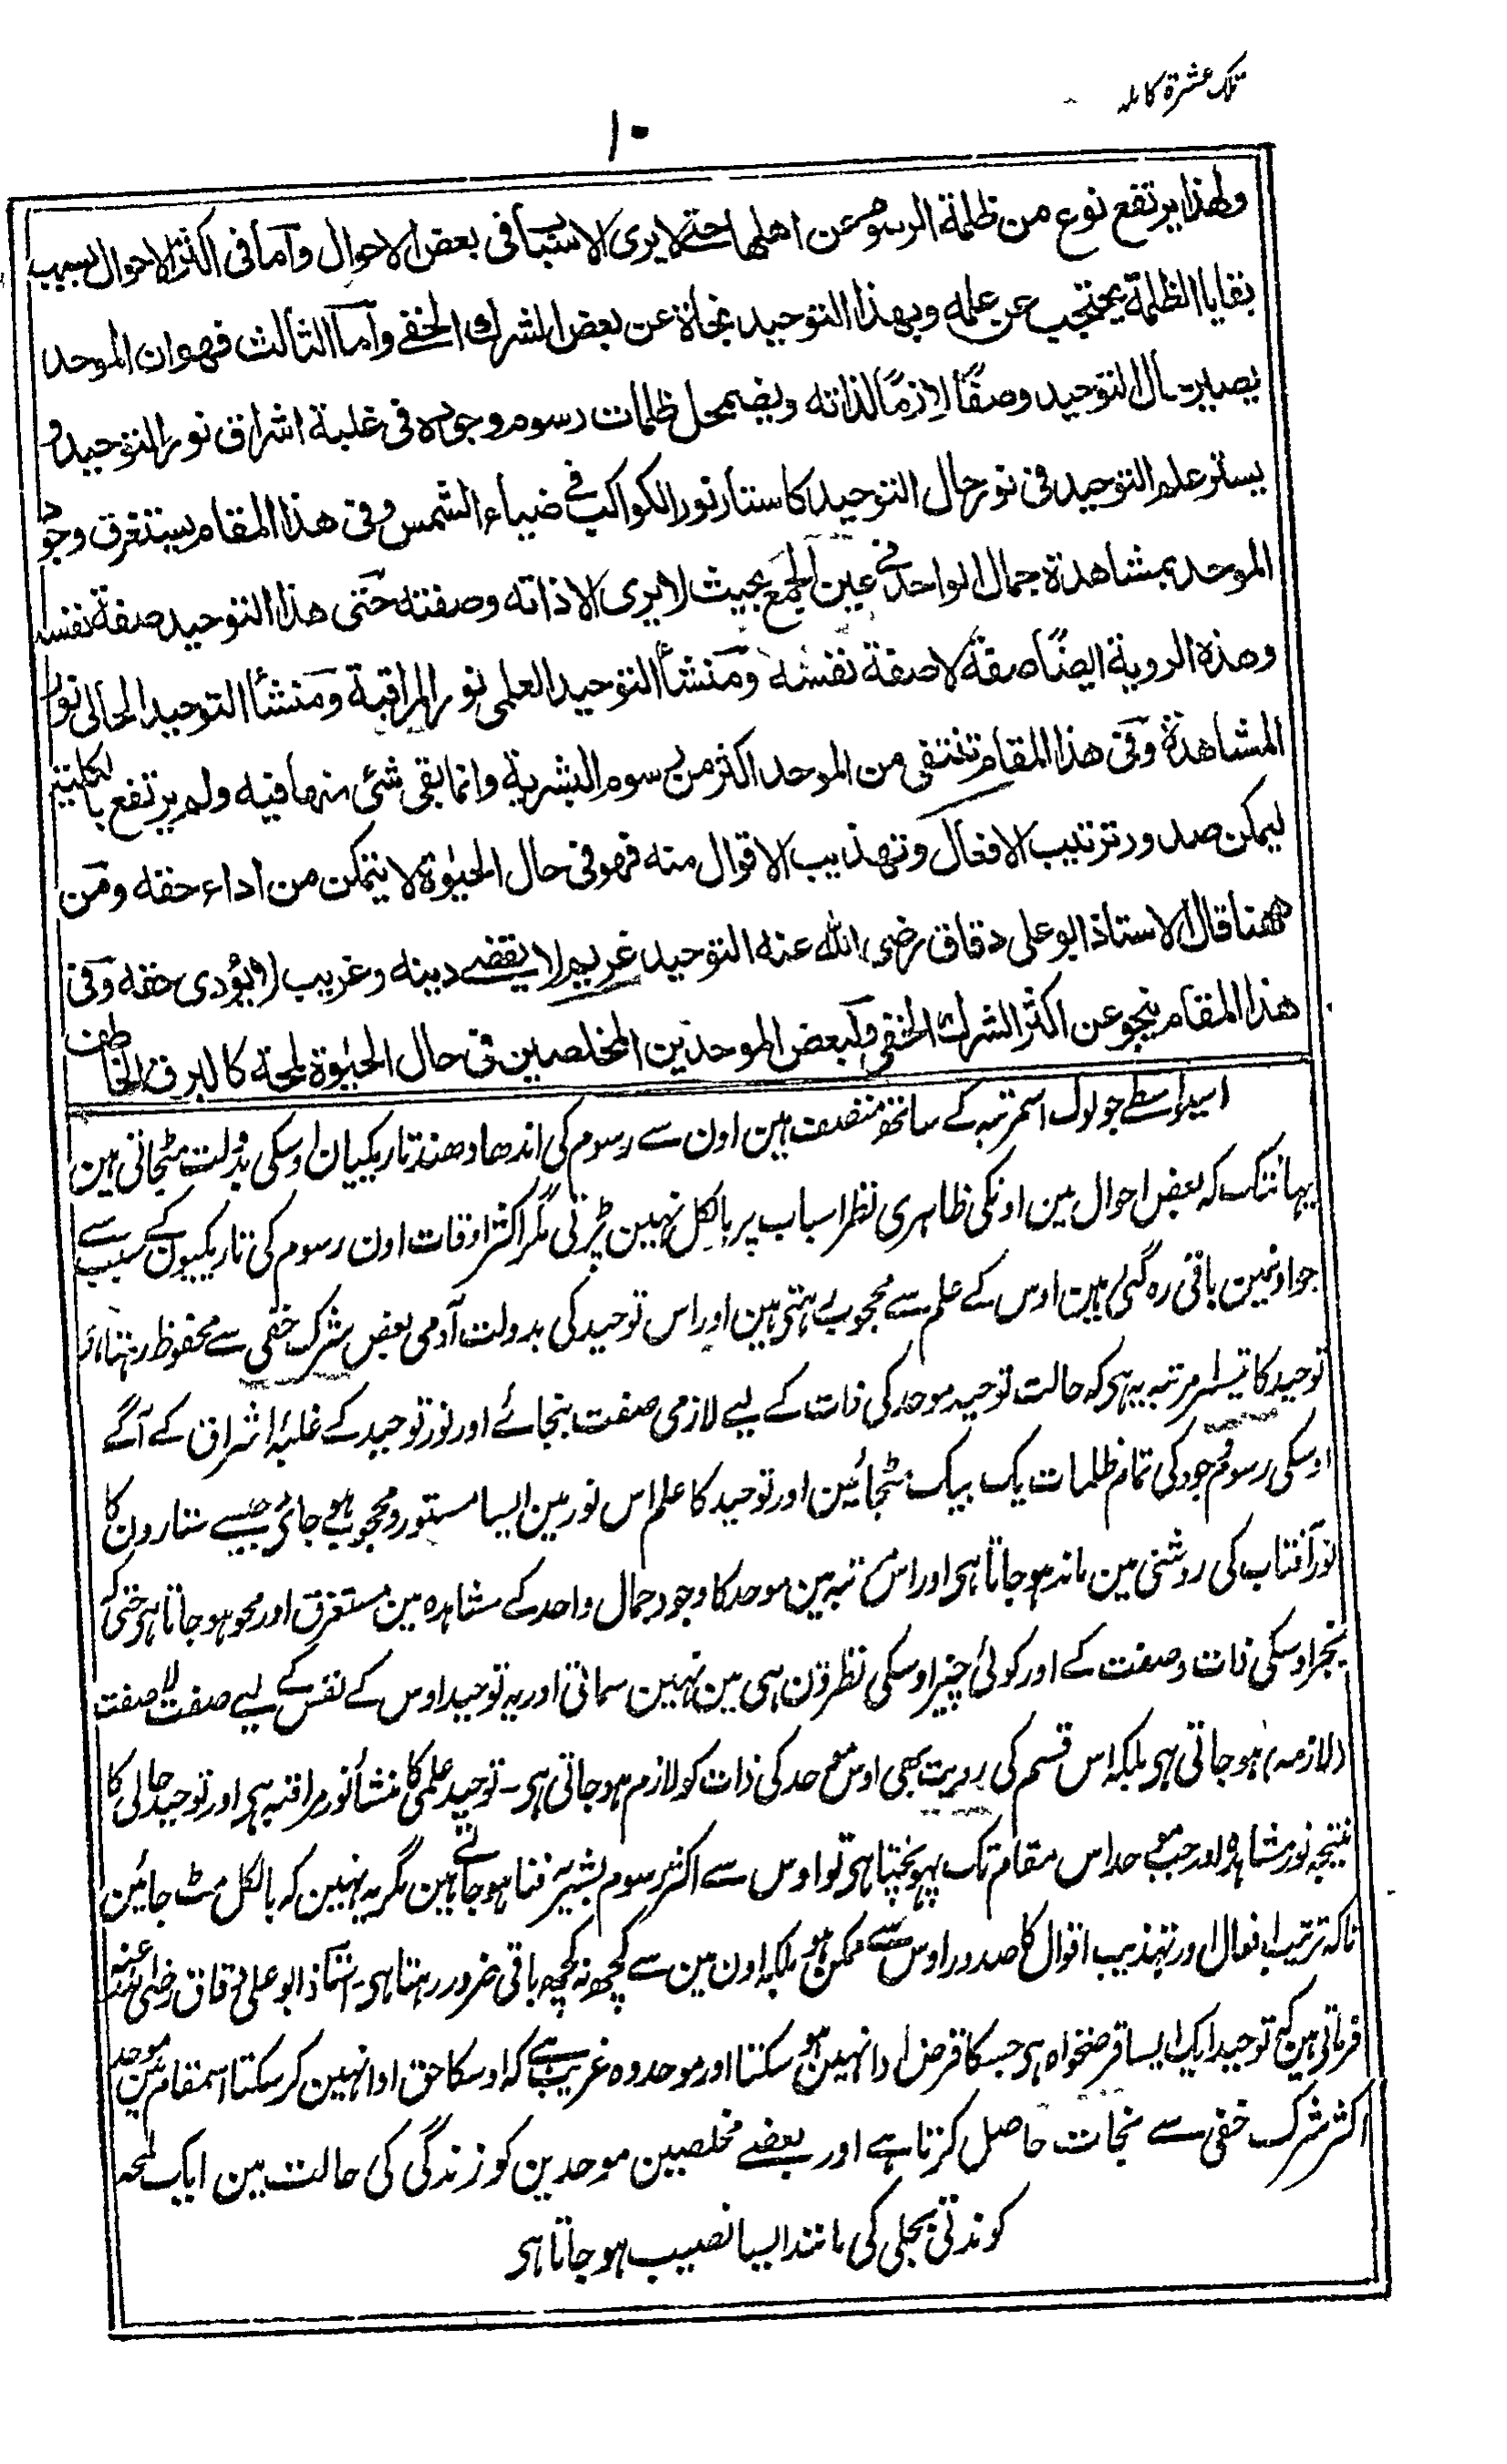 تلک عشرة کاملہ
۱۰
ولهذا يرتفع نوع من ظلمة الرسوم عن اهلها حتے لا يرى الاسباب فى بعض الاحوال واما فى اكثر الاحوال بسبب
بقايا الظلمة يحتجب عن علمه وبهذا التوحيد نجاة عن بعض الشرك الخفے واما الثالث فهو ان الموحد
يصير حال التوحيد وصفًا لازمًا لذاته ويضمحل ظلمات رسوم وجوده فى غلبة اشراق نور التوحيد و
يستر علم التوحيد فى نور حال التوحيد كاستتار نور الكواكب فے ضياء الشمس وفى هذا المقام يستغرق وجود
الموحد بمشاهدة جمال الواحد فے عين الجمع بحيث لا يرى الا ذاته وصفته حتى هذا التوحيد صفة نفسه
وهذه الروية ايضًا صفة لا صفة نفسه ومنشأ التوحيد العلمى نور المراقبة ومنشأ التوحيد الحالى نور
المشاهدة وفى هذا المقام تنتفى من الموحد اكثر من رسوم البشرية وانما بقى شئ منها فيه ولم يرتفع بالكلية
ليمكن صدور ترتيب الافعال وتهذيب الاقوال منه فهو فى حال الحيٰوة لا يتمكن من اداء حقه ومن
ههنا قال الاستاذ ابو على دقاق رضى الله عنه التوحيد غريم لا يقضے دينه وغريب لا يؤدى حقه وفى
هذا المقام ينجو عن اكثر الشرك الخفى ولبعض الموحدين المخلصين فى حال الحيٰوة لمحة كالبرق الخاطف
اسیواسطے جو لوگ اسمرتبہ کے ساتھ متصف ہین اون سے رسوم کی اندھا دھند تاریکیان اوسکی بدولت مٹجاتی ہین
یہانتک کہ بعض احوال مین اونکی ظاہری نظر اسباب پر بالکل نہین پڑتی مگر اکثر اوقات اون رسوم کی تاریکیون کے سبب سے
جو اونمین باقی رہ گئی ہین اوس کے علم سے محجوب رہتی ہین اور اس توحید کی بدولت آدمی بعض شرک خفی سے محفوظ رہتا ہی
توحید کا تیسرا مرتبہ یہ ہی کہ حالت توحید موحد کی ذات کے لیے لازمی صفت بنجائے اور نور توحید کے غلبۂ اشراق کے آگے
اوسکی رسوم وجود کی تمام ظلمات یک بیک مٹجائین اور توحید کا علم اس نور مین ایسا مستور و محجوب ہو جائے جیسے ستارون کا
نور آفتاب کی روشنی مین ماند ہو جاتا ہی اور اس مرتبہ مین موحد کا وجود جمال واحد کے مشاہدہ مین مستغرق اور محو ہو جاتا ہی حتی کہ
بجز اوسکی ذات و صفت کے اور کوئی چیز اوسکی نظرون ہی مین نہین سماتی اور یہ توحید اوس کے نفس کے لیے صفت لا صفت
(لازمہ) ہو جاتی ہی بلکہ اس قسم کی رویت بھی اوس موحد کی ذات کو لازم ہو جاتی ہی۔ توحید علمی کا منشأ نور مراقبہ ہی اور توحید حالی کا
نتیجہ نور مشاہدہ اور جب موحد اس مقام تک پہونچتا ہی تو اوس سے اکثر رسوم بشریہ فنا ہو جاتے ہین مگر یہ نہین کہ بالکل مٹ جائین
تاکہ ترتیب افعال اور تہذیب اقوال کا صدور اوس سے ممکن ہو بلکہ اون مین سے کچھ نہ کچھ باقی ضرور رہتا ہی۔ استاذ ابو علی دقاق رضی اللہ عنہ
فرماتی ہین کہ توحید ایک ایسا قرضخواہ ہی جسکا قرض ادا نہین ہو سکتا اور موحد وہ غریب ہے کہ اوسکا حق ادا نہین کر سکتا اسمقام مین موحد
اکثر شرک خفی سے نجات حاصل کرتا ہے اور بعضے مخلصین موحدین کو زندگی کی حالت مین ایک لمحہ
کوندتی بجلی کی مانند ایسا نصیب ہو جاتا ہی